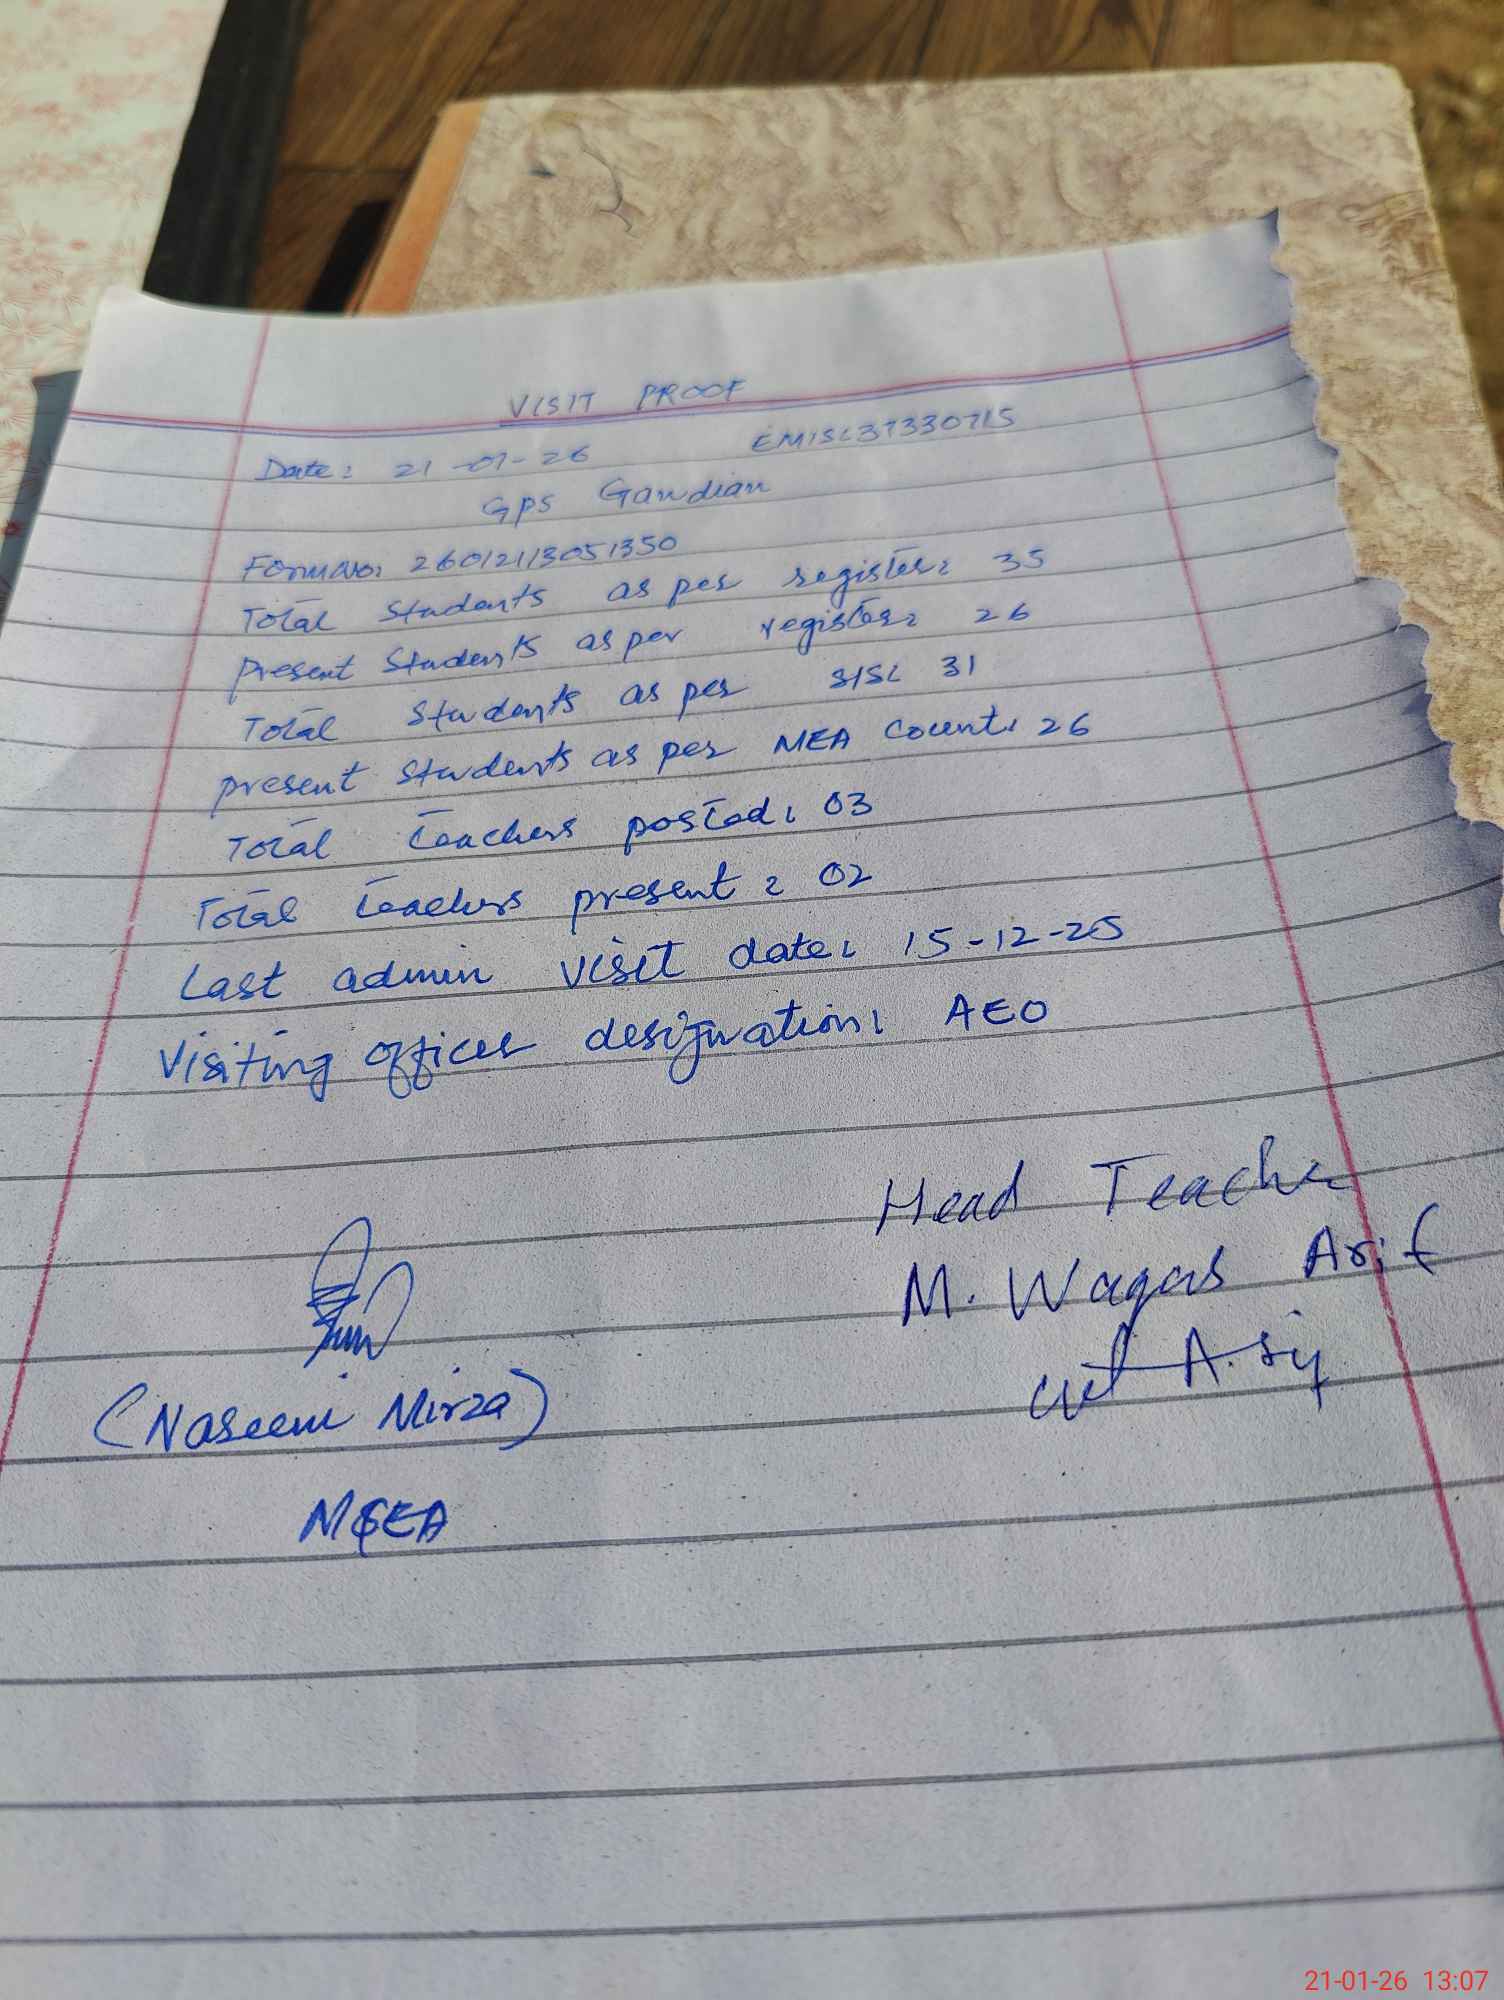 VISIT PROOF
Date: 21-01-26 EMIS: 37330715
GPS Gawdian
Form No: 26012113051350
Total Students as per register: 35
Present Students as per register: 26
Total Students as per SIS: 31
present students as per MEA count: 26
Total teachers posted: 03
Total teachers present: 02
Last admin visit date: 15-12-25
Visiting officer designation: AEO
Head Teacher
M. Waqas Arif
(Naseem Mirza)
MEA
21-01-26 13:07